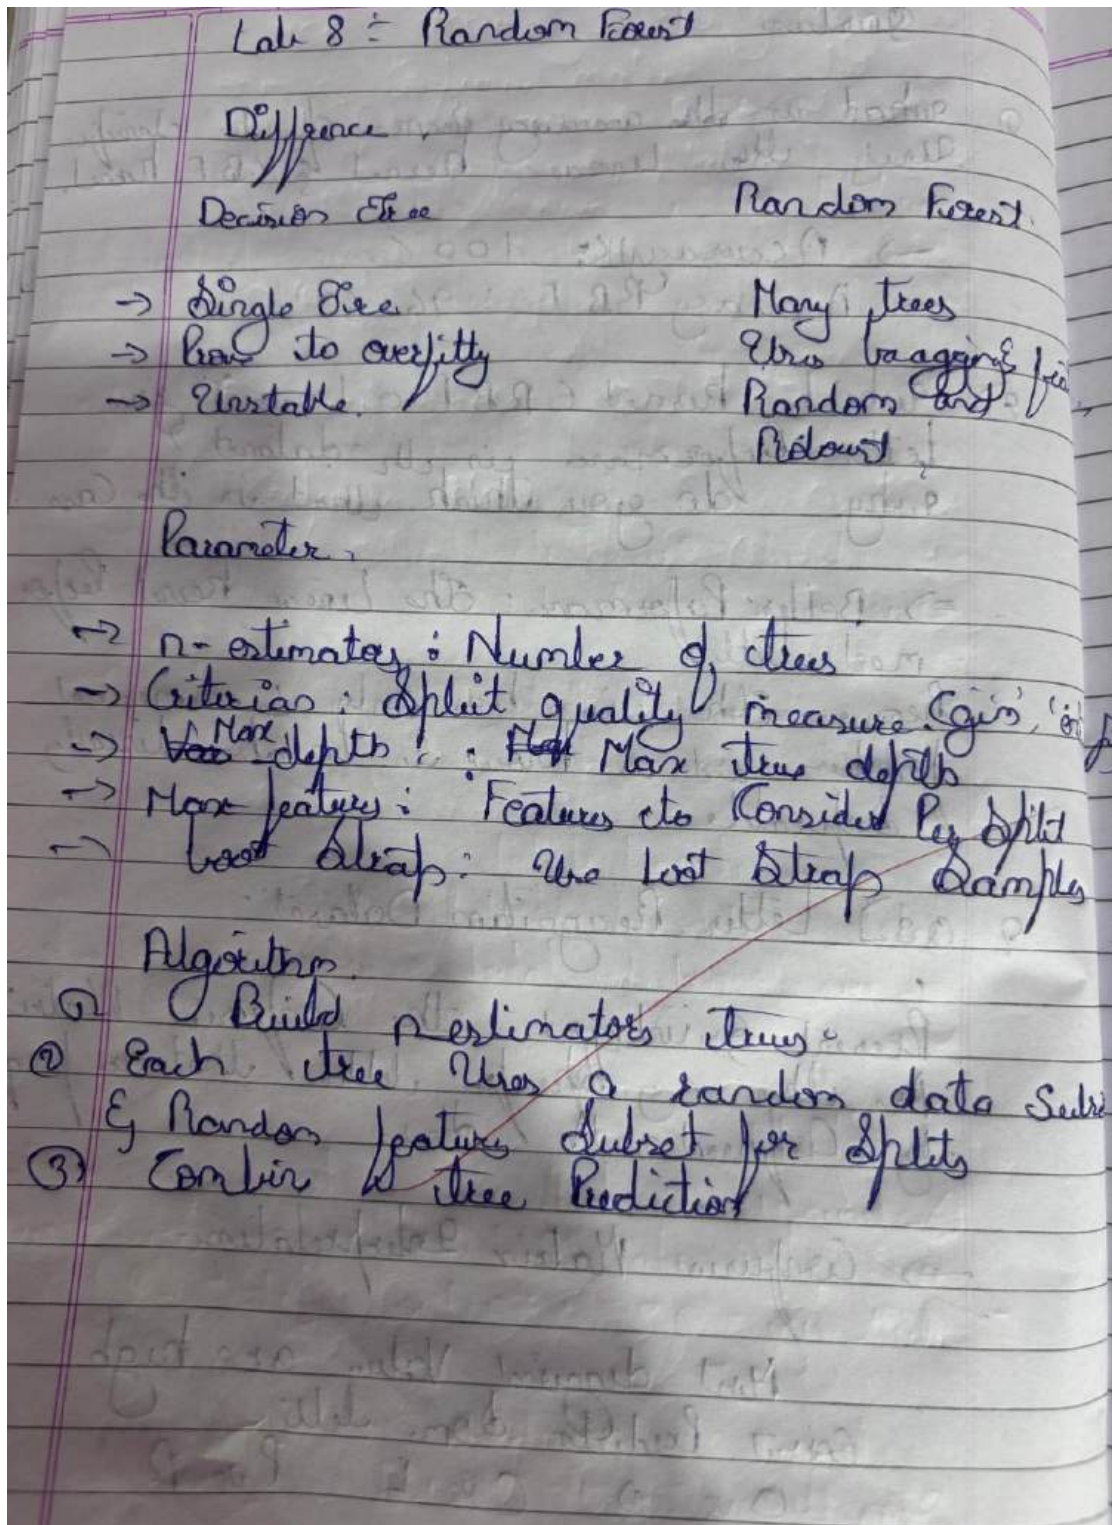 Lab 8 :- Random Forest
Diffrence
Decision Tree Random Forest.
→ Single Tree. Many trees
→ Prone to overfitty Uses baagging &
→ Unstable. Random and
Robust
Parameter,
→ n-estimators : Number of trees
→ Criterias : Split quality measure (gini,
→ Max depth : Max tree depth
→ Max features : Features to Consider Per Split
→ boot Strap : Use boot Strap Samples
Algorithm.
① Build n estimators trees.
② Each tree Uses a random data
& Random features Subset for Splits
③ Combin tree Prediction